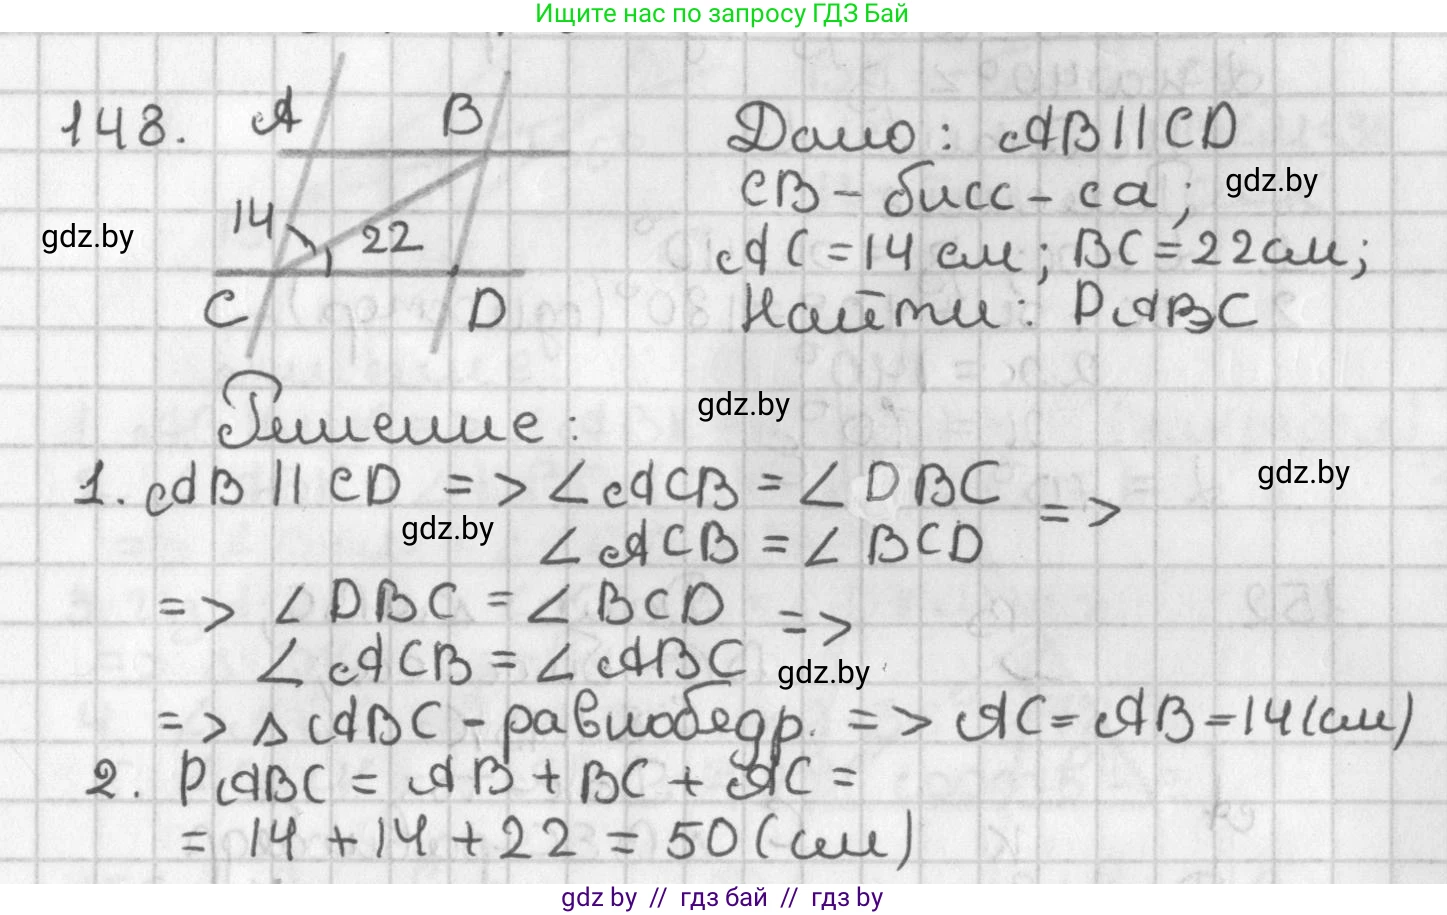 Ищите нас по запросу ГДЗ Бай
148.
A B
14 22
C D
gdz.by
Дано: AB||CD
CB - бисс-са;
gdz.by
AC = 14 см; BC = 22 см;
Найти: PABC
Решение:
gdz.by
1. AB || CD => ∠ACB = ∠DBC
∠ACB = ∠BCD =>
gdz.by
gdz.by
=> ∠DBC = ∠BCD
∠ACB = ∠ABC =>
gdz.by
=> ΔABC - равнобедр. => AC = AB = 14 (см)
2. PABC = AB + BC + AC =
= 14 + 14 + 22 = 50 (см)
gdz by // гдз бай // гдз by